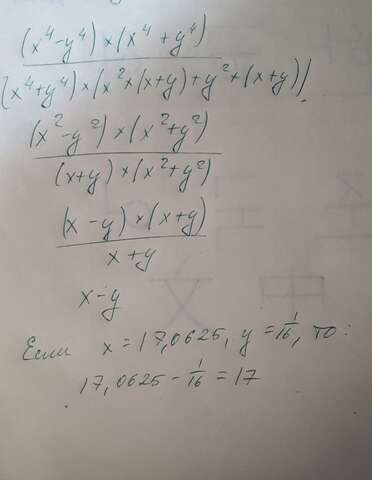 (x⁴-y⁴)×(x⁴+y⁴)
(x⁴+y⁴)×(x²×(x+y)+y²×(x+y))
(x²-y²)×(x²+y²)
(x+y)×(x²+y²)
(x-y)×(x+y)
x+y
x-y
Если x=17,0625, y=1/16, то:
17,0625-1/16=17